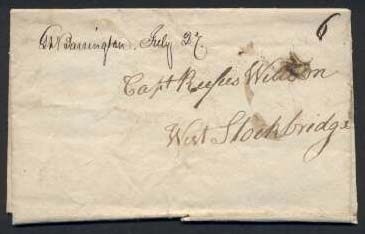 Gt Barrington. July 27
6
Capt Rufus
West Stockbridge